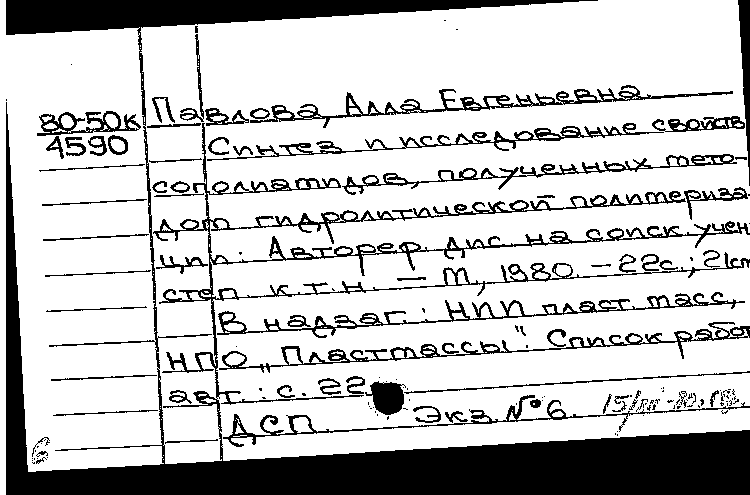 80-50к Павлова, Алла Евгеньевна.
4590 Синтез и исследование свойств
сополиамидов, полученных мето-
дом гидролитической полимериза
ции: Автореф. дис. на соиск. учен
степ. к.т.н. — М., 1980. — 22с.; 21см
В надзаг.: НИИ пласт. масс,
НПО „Пластмассы". Список работ
авт.: с. 22
ДСП. Экз. № 6.
6